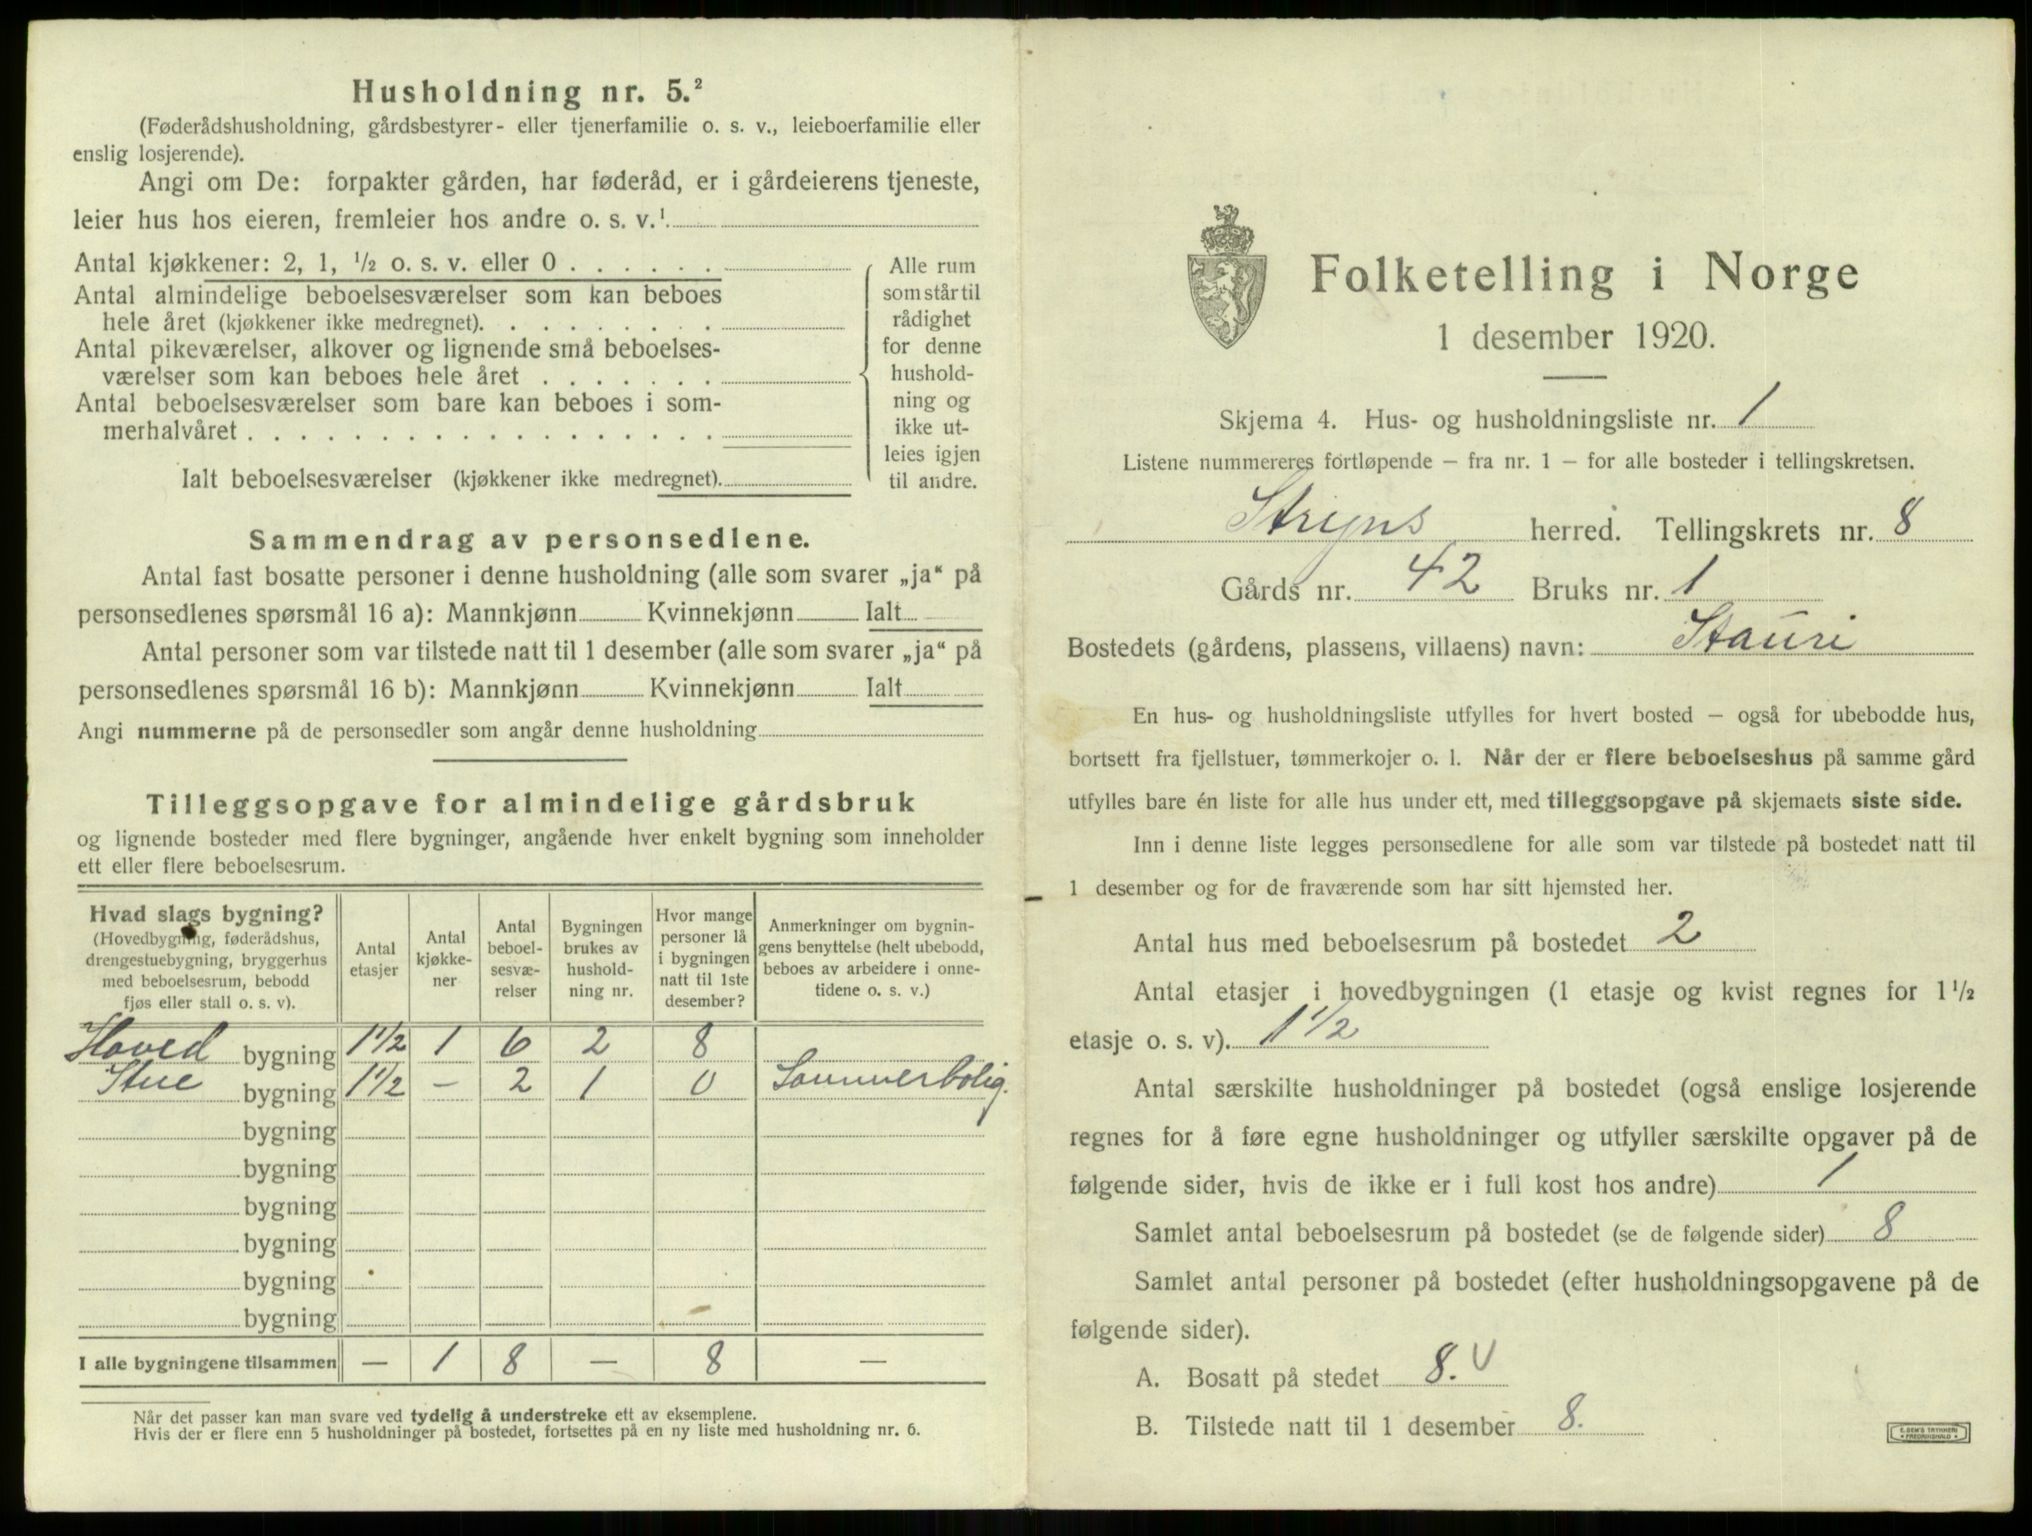 Husholdning nr. 5.²
(Føderådshusholdning, gårdsbestyrer- eller tjenerfamilie o. s. v., leieboerfamilie eller
enslig losjerende).
Angi om De: forpakter gården, har føderåd, er i gårdeierens tjeneste,
leier hus hos eieren, fremleier hos andre o. s. v.¹
Antal kjøkkener: 2, 1, ½ o. s. v. eller 0 . . . . . .
Antal almindelige beboelsesværelser som kan beboes
hele året (kjøkkener ikke medregnet). . . . . . . . .
Antal pikeværelser, alkover og lignende små beboelses-
værelser som kan beboes hele året . . . . . . .
Antal beboelsesværelser som bare kan beboes i som-
merhalvåret . . . . . . . . . . . . . . . . . .
Ialt beboelsesværelser (kjøkkener ikke medregnet).
Alle rum
som står til
rådighet
for denne
hushold-
ning og
ikke ut-
leies igjen
til andre.
Sammendrag av personsedlene.
Antal fast bosatte personer i denne husholdning (alle som svarer „ja“ på
personsedlenes spørsmål 16 a): Mannkjønn Kvinnekjønn Ialt
Antal personer som var tilstede natt til 1 desember (alle som svarer „ja“ på
personsedlenes spørsmål 16 b): Mannkjønn Kvinnekjønn Ialt
Angi nummerne på de personsedler som angår denne husholdning
Tilleggsopgave for almindelige gårdsbruk
og lignende bosteder med flere bygninger, angående hver enkelt bygning som inneholder
ett eller flere beboelsesrum.
Hvad slags bygning?
(Hovedbygning, føderådshus,
drengestuebygning, bryggerhus
med beboelsesrum, bebodd
fjøs eller stall o. s. v).
Antal
etasjer
Antal
kjøkke-
ner
Antal
beboel-
sesvæ-
relser
Bygningen
brukes av
hushold-
ning nr.
Hvor mange
personer lå
i bygningen
natt til 1ste
desember?
Anmerkninger om bygnin-
gens benyttelse (helt ubebodd,
beboes av arbeidere i onne-
tidene o. s. v.)
Hoved bygning 1½ 1 6 2 8
Stue bygning 1½ - 2 1 0 Sommerbolig.
bygning
bygning
bygning
bygning
bygning
bygning
I alle bygningene tilsammen — 1 8 — 8 —
Når det passer kan man svare ved tydelig å understreke ett av eksemplene.
Hvis der er flere enn 5 husholdninger på bostedet, fortsettes på en ny liste med husholdning nr. 6.
Folketelling i Norge
1 desember 1920.
Skjema 4. Hus- og husholdningsliste nr. 1
Listene nummereres fortløpende – fra nr. 1 – for alle bosteder i tellingskretsen.
Stryns herred. Tellingskrets nr. 8
Gårds nr. 42 Bruks nr. 1
Bostedets (gårdens, plassens, villaens) navn: Stauri
En hus- og husholdningsliste utfylles for hvert bosted – også for ubebodde hus,
bortsett fra fjellstuer, tømmerkojer o. l. Når der er flere beboelseshus på samme gård
utfylles bare én liste for alle hus under ett, med tilleggsopgave på skjemaets siste side.
Inn i denne liste legges personsedlene for alle som var tilstede på bostedet natt til
1 desember og for de fraværende som har sitt hjemsted her.
Antal hus med beboelsesrum på bostedet 2
Antal etasjer i hovedbygningen (1 etasje og kvist regnes for 1½
etasje o. s. v). 1½
Antal særskilte husholdninger på bostedet (også enslige losjerende
regnes for å føre egne husholdninger og utfyller særskilte opgaver på de
følgende sider, hvis de ikke er i full kost hos andre) 1
Samlet antal beboelsesrum på bostedet (se de følgende sider) 8
Samlet antal personer på bostedet (efter husholdningsopgavene på de
følgende sider).
A. Bosatt på stedet 8. v
B. Tilstede natt til 1 desember 8.
E. SEM'S TRYKKERI
FREDRIKSHALD